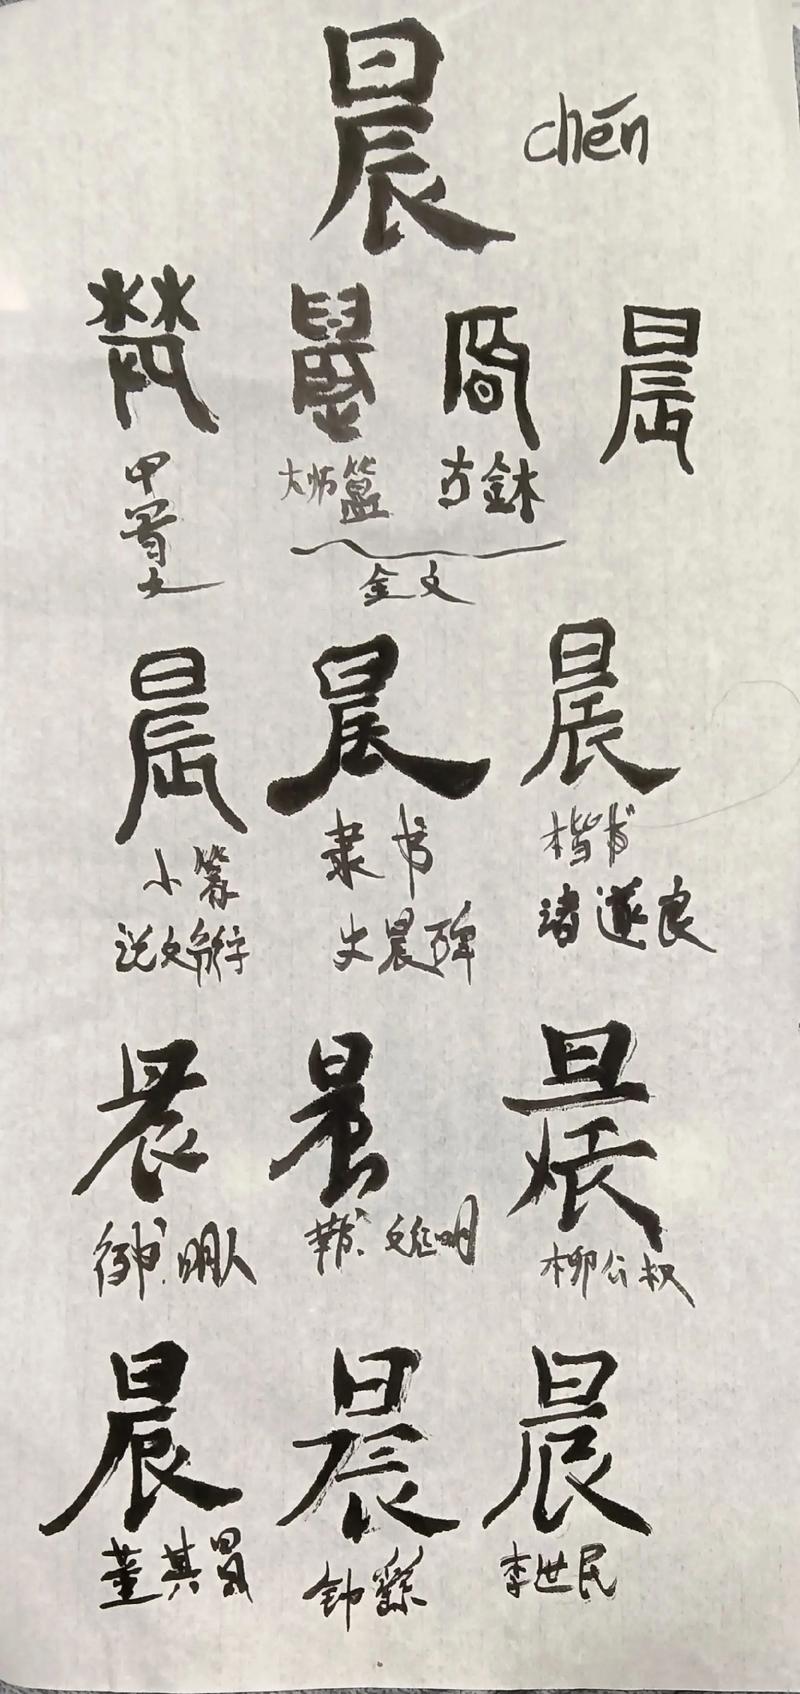 晨 chén
晨 晨 晨 晨
甲骨文 大师簋 古鉢
金文
晨 晨 晨
小篆 隶书 楷书
说文解字 史晨碑 褚遂良
晨 晨 晨
明人 文徵明 柳公权
晨 晨 晨
董其昌 钟繇 李世民